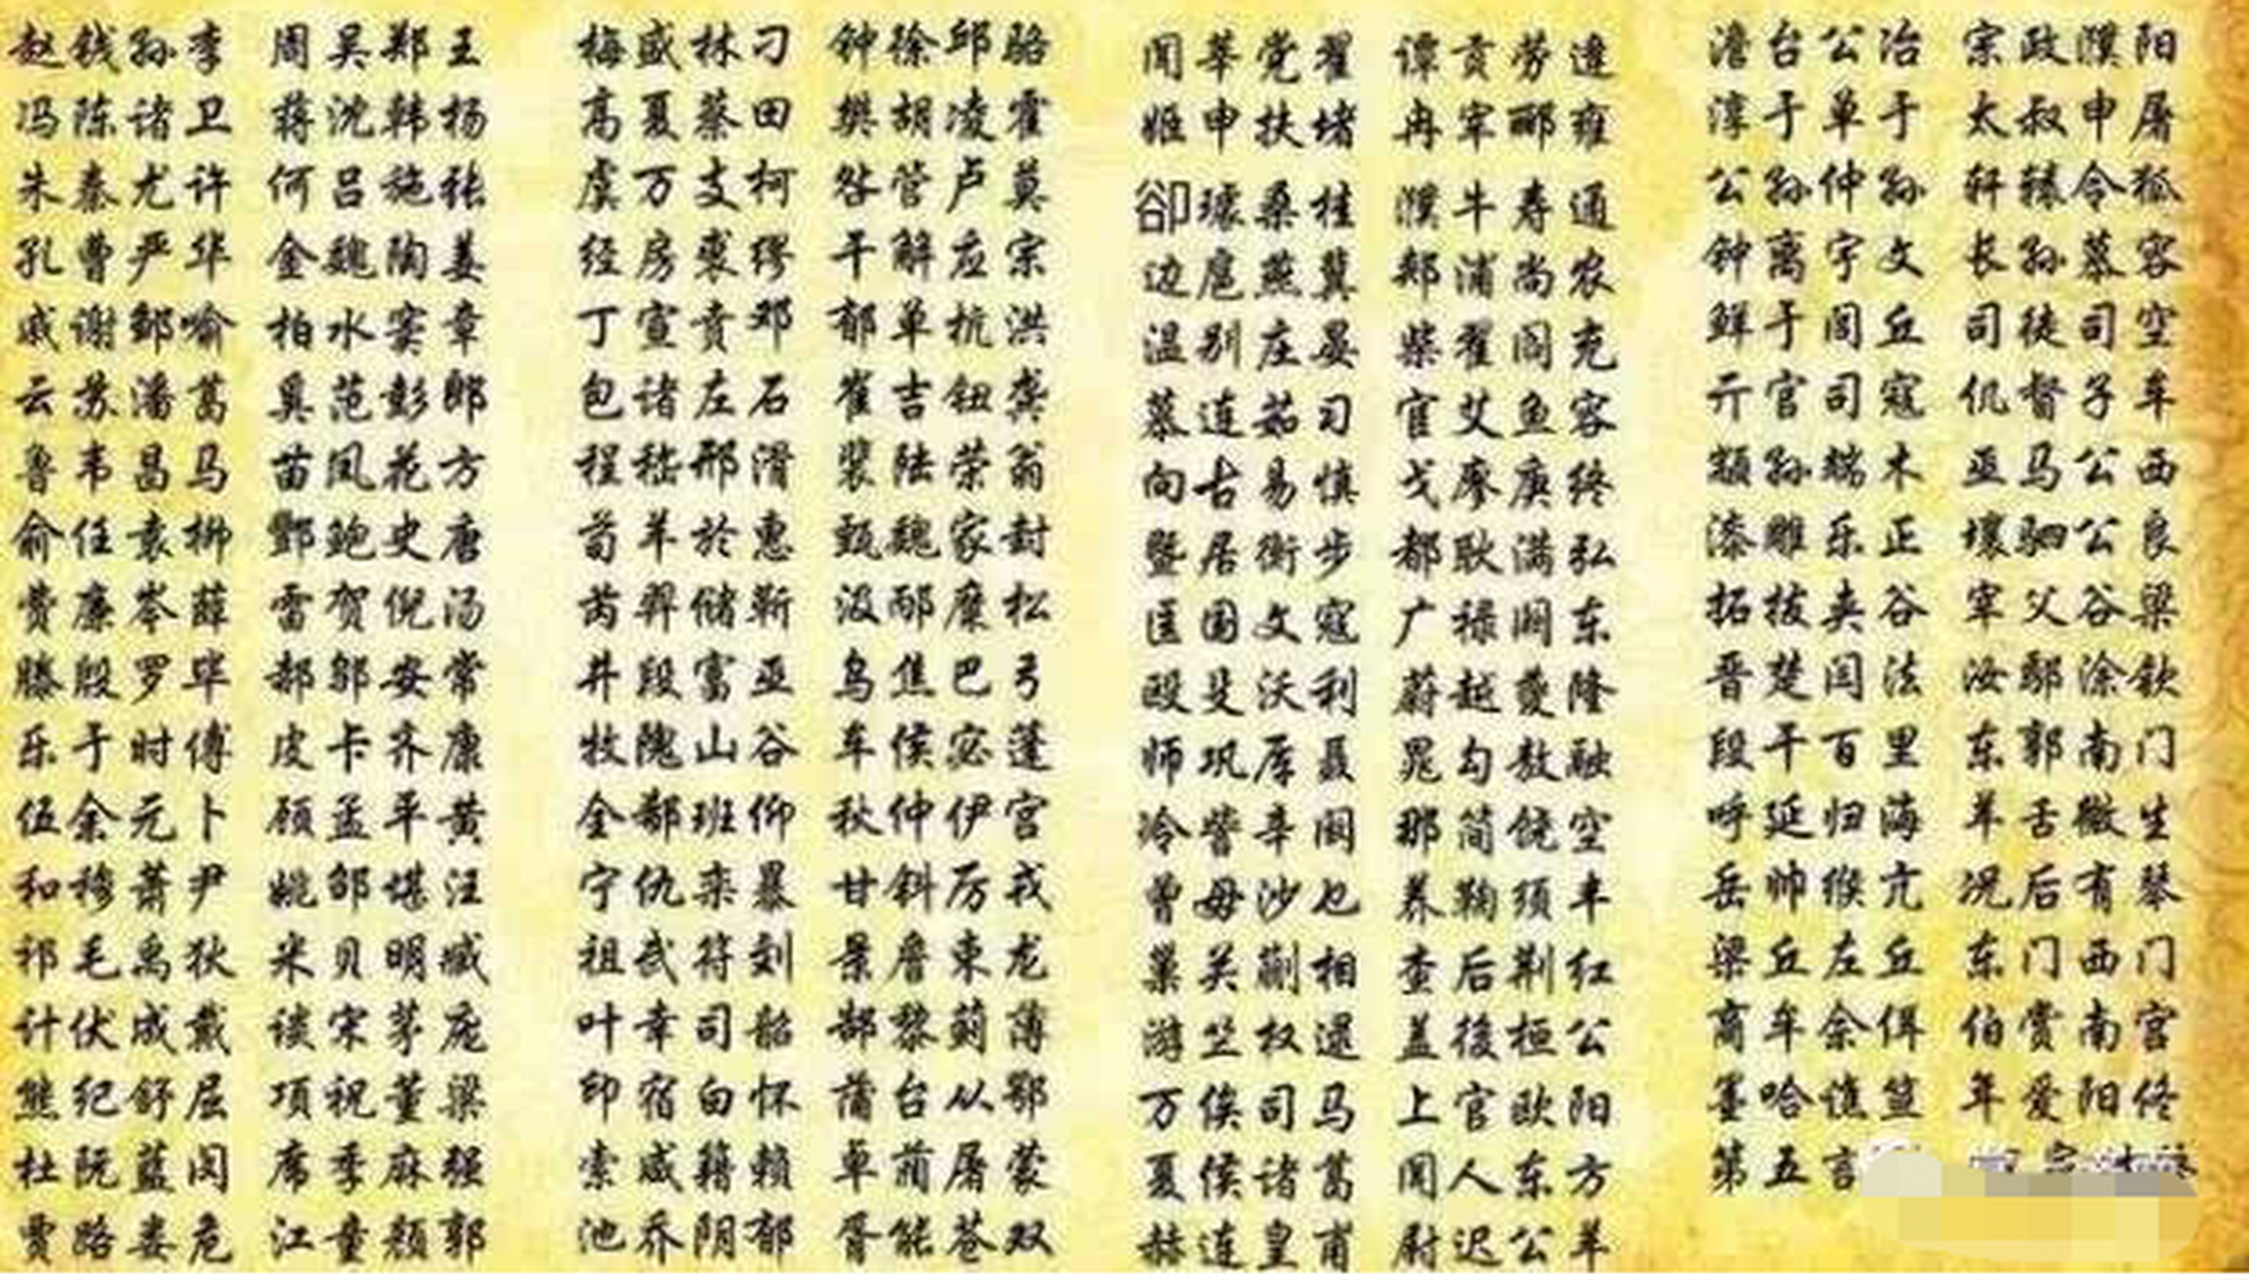 赵钱孙李 周吴郑王
冯陈诸卫 蒋沈韩杨
朱秦尤许 何吕施张
孔曹严华 金魏陶姜
戚谢邹喻 柏水窦章
云苏潘葛 奚范彭郎
鲁韦昌马 苗凤花方
俞任袁柳 酆鲍史唐
费廉岑薛 雷贺倪汤
滕殷罗毕 郝邬安常
乐于时傅 皮卞齐康
伍余元卜 顾孟平黄
和穆萧尹 姚邵堪汪
祁毛禹狄 米贝明臧
计伏成戴 谈宋茅庞
熊纪舒屈 项祝董梁
杜阮蓝闵 席季麻强
贾路娄危 江童颜郭
梅盛林刁 钟徐邱骆
高夏蔡田 樊胡凌霍
虞万支柯 昝管卢莫
经房裘缪 干解应宗
丁宣贲邓 郁单杭洪
包诸左石 崔吉钮龚
程嵇邢滑 裴陆荣翁
荀羊於惠 甄魏家封
芮羿储靳 汲邴糜松
井段富巫 乌焦巴弓
牧隗山谷 车侯宓蓬
全郗班仰 秋仲伊宫
宁仇栾暴 甘斜厉戎
祖武符刘 景詹束龙
叶幸司韶 郜黎蓟薄
印宿白怀 蒲台从鄂
索咸籍赖 卓蔺屠蒙
池乔阴郁 胥能苍双
闻莘党翟 谭贡劳逄
姬申扶堵 冉宰郦雍
卻璩桑桂 濮牛寿通
边扈燕冀 郏浦尚农
温别庄晏 柴瞿阎充
慕连茹习 宦艾鱼容
向古易慎 戈廖庾终
暨居衡步 都耿满弘
匡国文寇 广禄阙东
殴殳沃利 蔚越夔隆
师巩厍聂 晁勾敖融
冷訾辛阚 那简饶空
曾毋沙乜 养鞠须丰
巢关蒯相 查后荆红
游竺权逯 盖後桓公
万俟司马 上官欧阳
夏侯诸葛 闻人东方
赫连皇甫 尉迟公羊
澹台公冶 宗政濮阳
淳于单于 太叔申屠
公孙仲孙 轩辕令狐
钟离宇文 长孙慕容
鲜于闾丘 司徒司空
亓官司寇 仉督子车
颛孙端木 巫马公西
漆雕乐正 壤驷公良
拓拔夹谷 宰父谷梁
晋楚闫法 汝鄢涂钦
段干百里 东郭南门
呼延归海 羊舌微生
岳帅缑亢 况后有琴
梁丘左丘 东门西门
商牟佘佴 伯赏南宫
墨哈谯笪 年爱阳佟
第五言